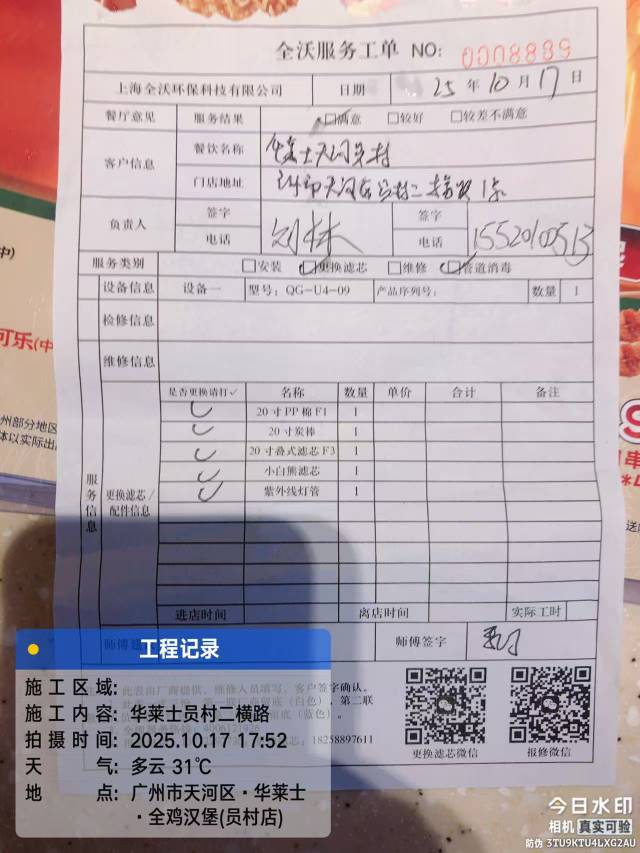 全沃服务工单 NO: 0008889
上海全沃环保科技有限公司 日期 25 年 10 月 17 日
餐厅意见 服务结果 □满意 □较好 □较差不满意
客户信息 餐饮名称 华莱士天河员村
门店地址
负责人 签字 签字
电话 刘林 电话 15520100513
服务类别 □安装 □更换滤芯 □维修 □管道消毒
设备信息 设备一 型号: QG-U4-09 产品序列号: 数量 1
检修信息
维修信息
是否更换请打✓ 名称 数量 单价 合计 备注
✓ 20寸PP棉F1 1
✓ 20寸炭棒 1
✓ 20寸叠式滤芯F3 1
✓ 小白熊滤芯 1
✓ 紫外线灯管 1
服务信息
更换滤芯/
配件信息
进店时间 离店时间 实际工时
师傅签字
此表由厂商提供、维修人员填写,客户签字确认。
(白色),第二联
底(蓝色)。
18258897611
更换滤芯微信 报修微信
工程记录
施工区域:
施工内容: 华莱士员村二横路
拍摄时间: 2025.10.17 17:52
天气: 多云 31℃
地点: 广州市天河区·华莱士
·全鸡汉堡(员村店)
今日水印
相机 真实可验
防伪 3TU9KTU4LXG2AU
中)
可乐(中
州部分地区
体以实际出